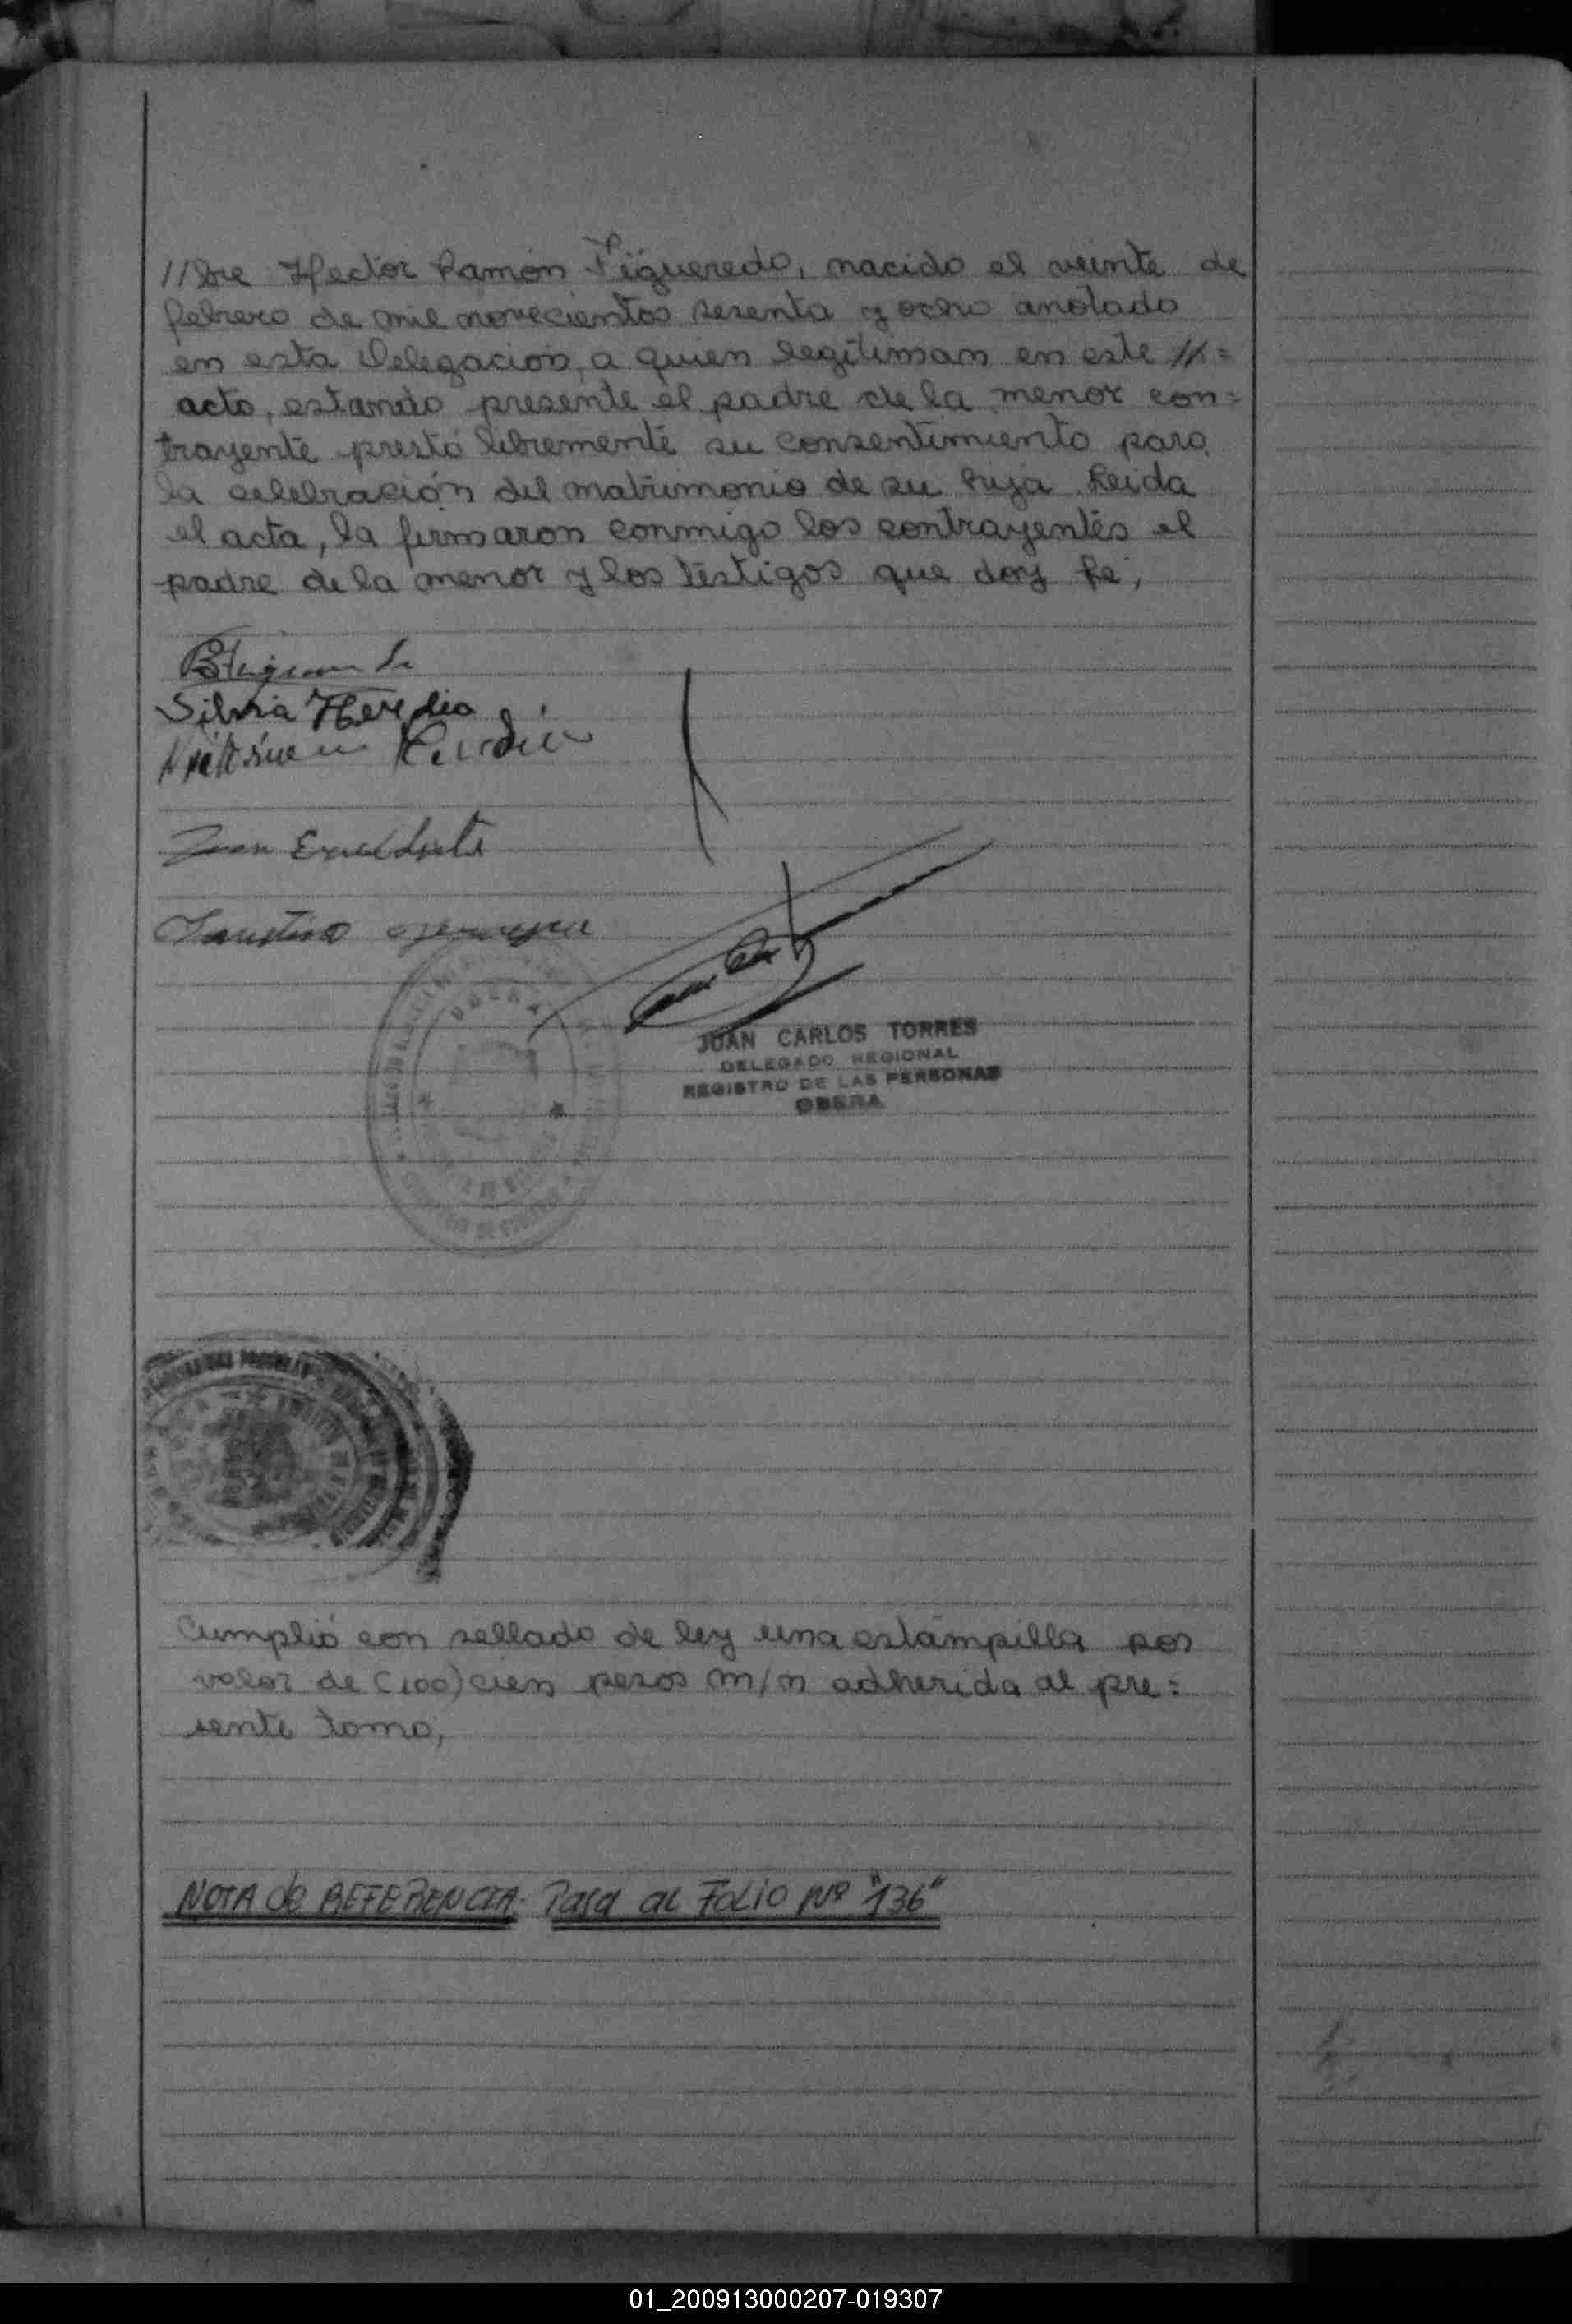 //bre Hector Ramón Figueredo, nacido el veinte de
febrero de mil novecientos sesenta y ocho anotado
en esta Delegación, a quien legitiman en este //=
acto, estando presente el padre de la menor con=
trayente prestó libremente su consentimiento para
la celebración del matrimonio de su hija Leida
el acta, la firmaron conmigo los contrayentes el
padre de la menor y los testigos que doy fe;
Silvia Heredia
Juan
Faustino
OBERA
JUAN CARLOS TORRES
DELEGADO REGIONAL
REGISTRO DE LAS PERSONAS
OBERA
Cumplió con sellado de ley una estampilla por
valor de (100) cien pesos m/n adherida al pre=
sente tomo;
NOTA de REFERENCIA: Pasa al FOLIO Nº "136"
01_200913000207-019307